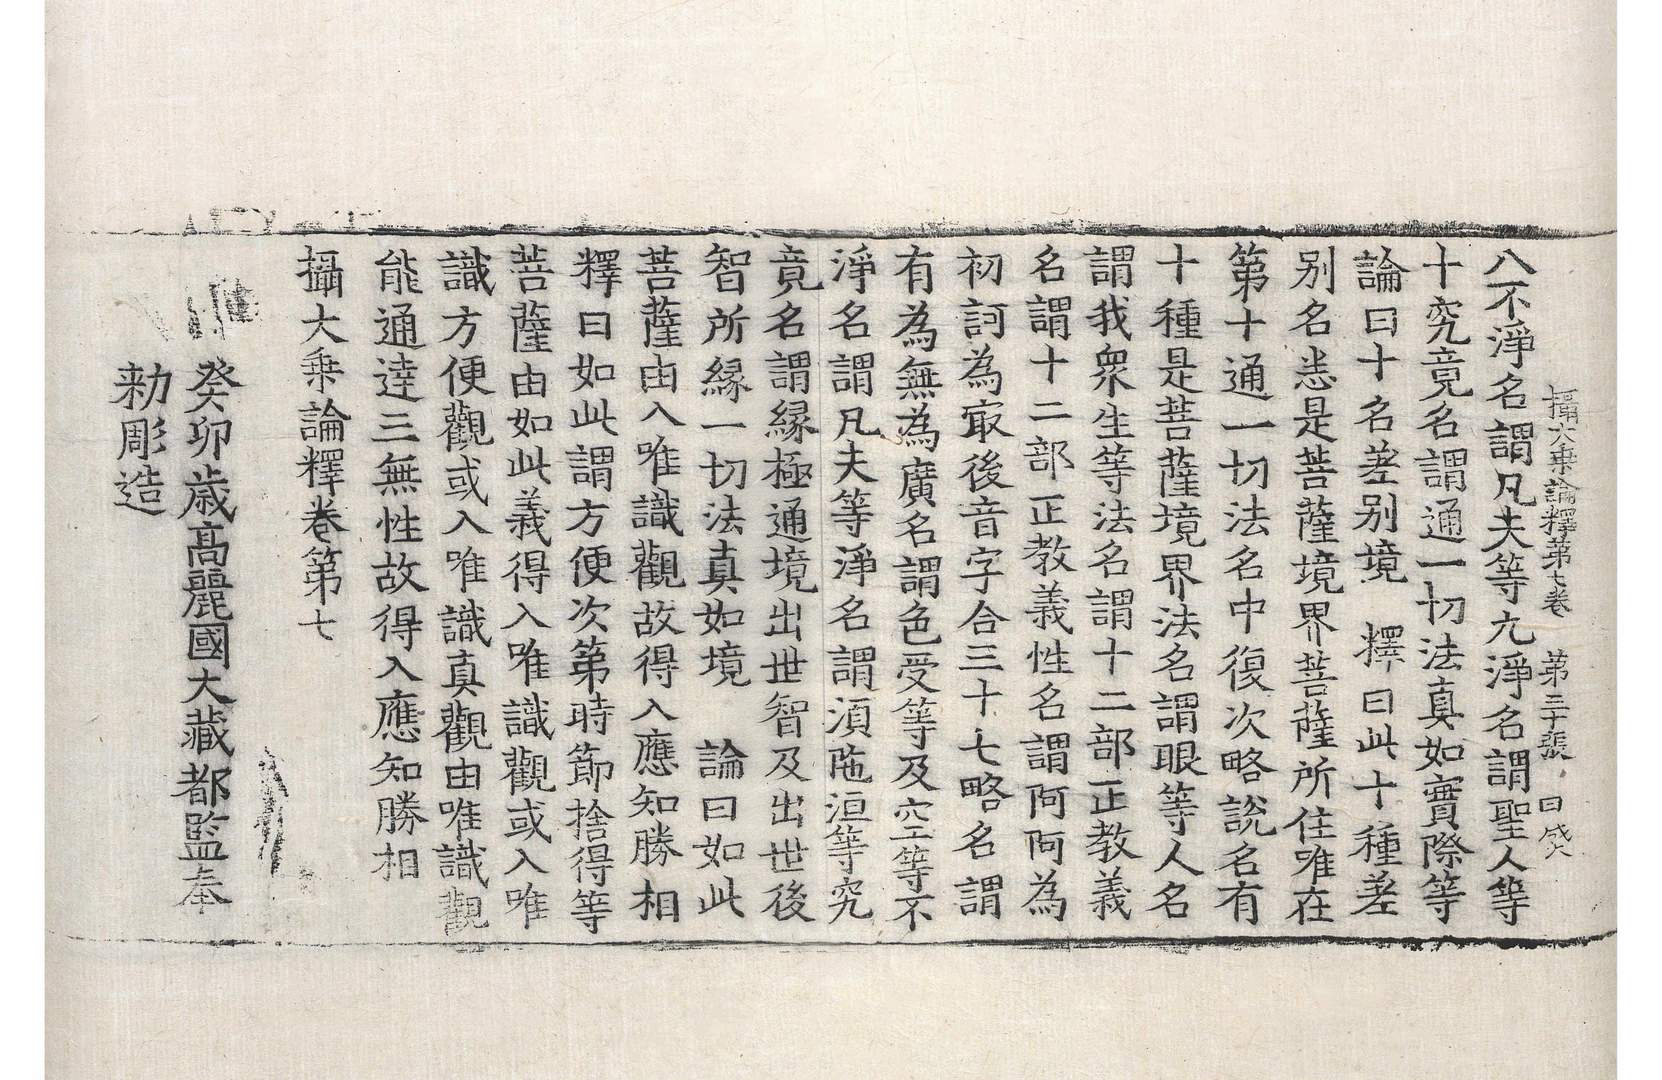 攝大乗論釋第七卷　第三十張　曰
八不淨名謂凡夫等九淨名謂聖人等
十究竟名謂通一切法真如實際等
論曰十名差别境　釋曰此十種差
别名悉是菩薩境界菩薩所住唯在
第十通一切法名中復次略說名有
十種是菩薩境界法名謂眼等人名
謂我衆生等法名謂十二部正教義
名謂十二部正教義性名謂阿阿為
初訶為㝡後音字合三十七略名謂
有為無為廣名謂色受等及空等不
淨名謂凡夫等淨名謂湏陁洹等究
竟名謂縁極通境出世智及出世後
智所縁一切法真如境　論曰如此
菩薩由入唯識觀故得入應知勝相
釋曰如此謂方便次第時節捨得等
菩薩由如此義得入唯識觀或入唯
識方便觀或入唯識真觀由唯識觀
能通達三無性故得入應知勝相
攝大乗論釋卷第七
癸卯歳髙麗國大藏都監奉
勑彫造